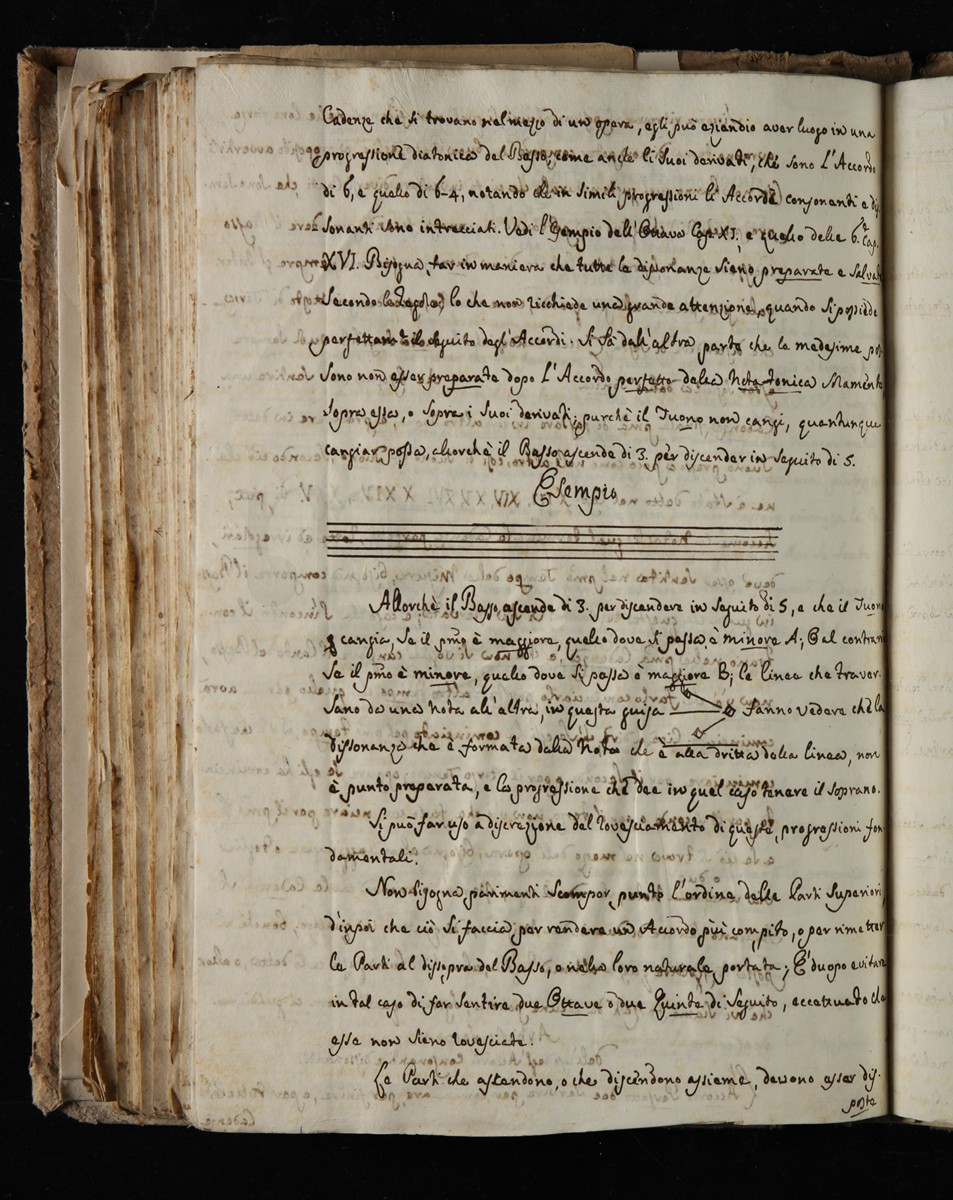 Cadenze che si trovano nel mezzo di un opera, egli può eziandio aver luogo in una
progressione diatonica del Basso, come anche li Suoi derivati, che sono L'Accordo
di 6, e quello di 6-4, notando che in simili progressioni li Accordi consonanti e dis
Sonanti sono intrecciati. Vedi l'Esempio dell'Ottava Cap. XI. e quello delle 6.te Cap.
XVI. Bisogna far in maniera che tutte le dissonanze sieno preparate e Salvate
Secondo le Regole, lo che non ricchiede una grande attenzione, quando si possiede
perfettam.te il seguito degl'Accordi. Si sà dall'altra parte che le medesime pos
Sono non esser preparate dopo L'Accordo perfetto della Nota tonica
Sopra essa, o Sopra i Suoi derivati, purchè il Tuono non cangi, quantunque
cangiar possa, allorchè il Basso ascende di 3. per discender in Seguito di 5.
Esempio
Allorchè il Basso ascende di 3. per discendere in Seguito di 5, e che il Tuono
cangia, Se il p̃mo è maggiore, quello dove si passa è minore A; E al contrario
Se il p̃mo è minore, quello dove Si passa è maggiore B; le linee che traver-
Sano da una Nota all'altra, in questa guisa fanno vedere che la
dissonanza che è formata dalla Nota che è alla dritta della linea, non
è punto preparata, e la progressione che dee in quel caso tenere il Soprano.
Si può far uso a discrezione del rovesciamento di queste progressioni fon
damentali.
Non bisogna parimenti Scompor punto l'ordine delle Parti Superiori,
d'inpoi che ciò Si faccia per rendere un Accordo più compito, o per rimetter
le Parti al dissopra del Basso, o nella loro naturale portata; E' duopo evitare
in tal caso di far Sentire due Ottave o due Quinte di Seguito, eccetuato che
esse non Sieno rovesciate.
Le Parti che ascendono, o che discendono assieme, devono esser dis-
poste